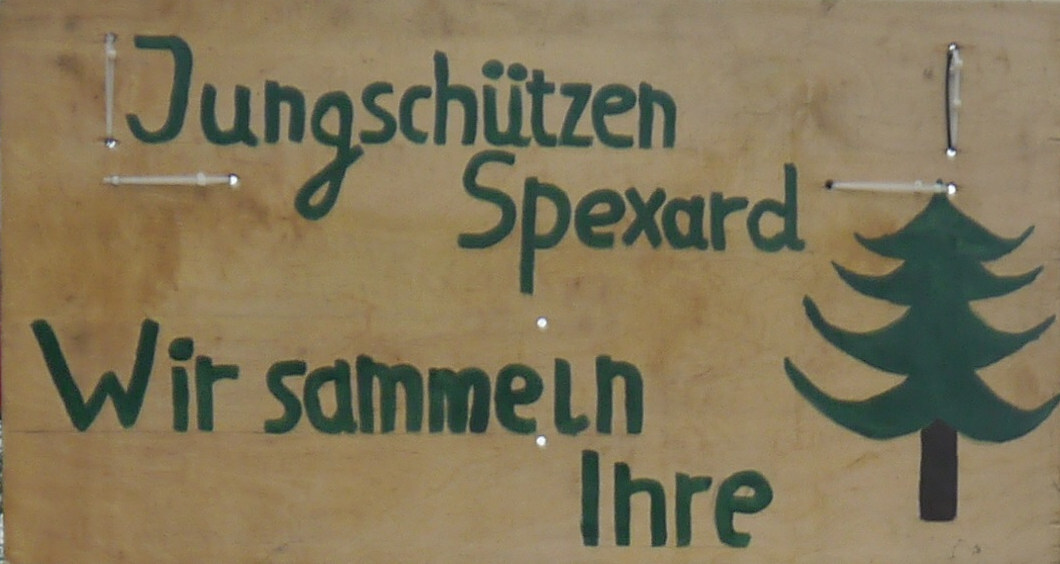 Jungschützen
Spexard
Wir sammeln
Ihre